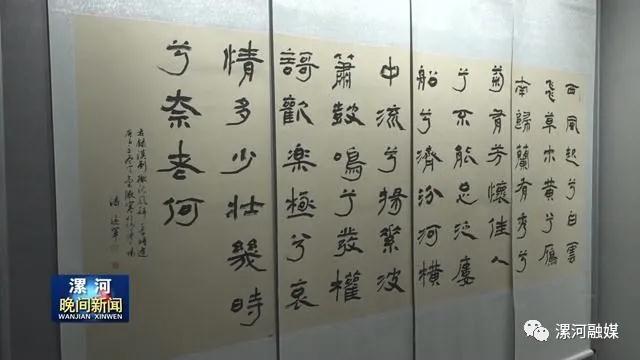 西風起兮白雲
飛草木黄兮鴈
南歸蘭有秀兮
菊有芳懷佳人
兮不能忘泛樓
船兮濟汾河橫
中流兮揚素波
簫鼓鳴兮發櫂
謌歡樂極兮哀
情多少壯幾時
兮奈老何
漯河
晚间新闻
WANJIAN XINWEN
漯河融媒